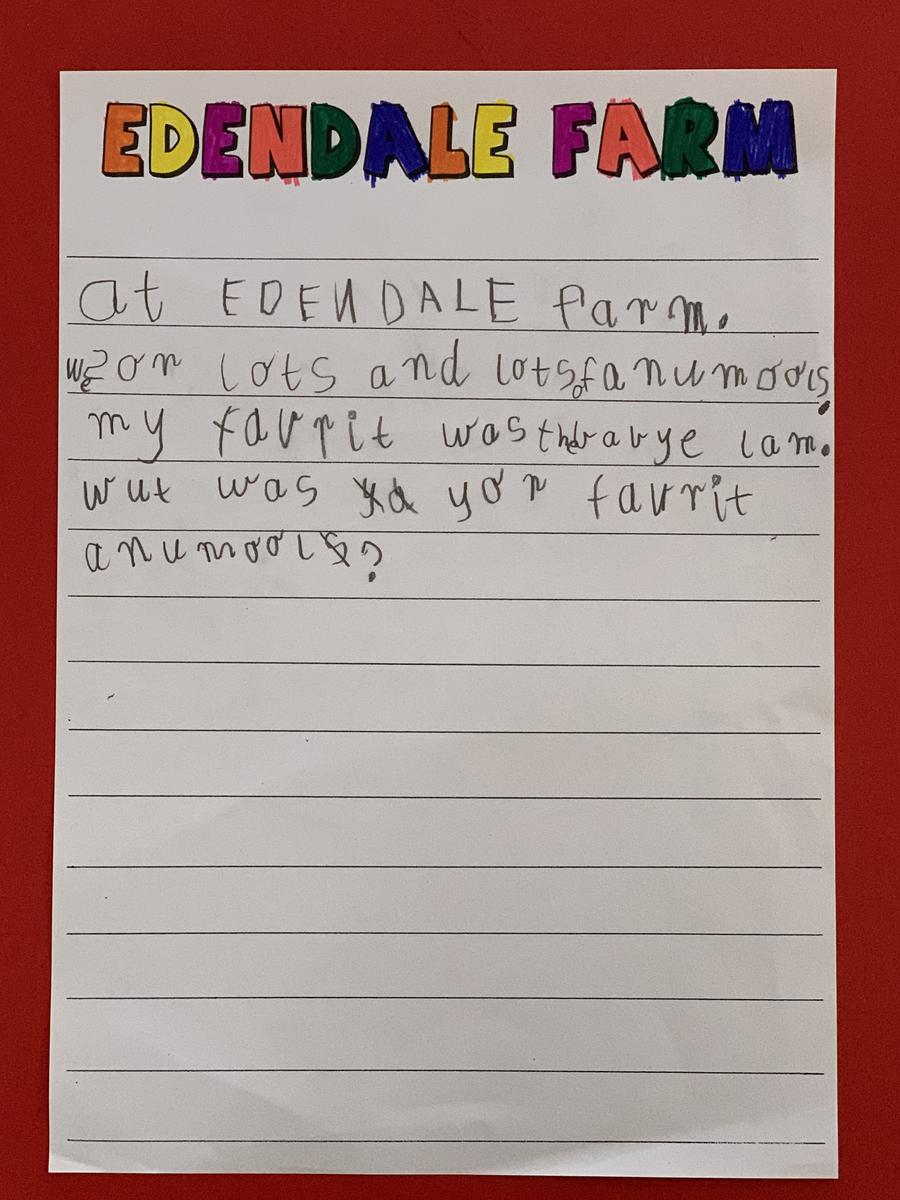 EDENDALE FARM
at EDENDALE farm.
we sor lots and lots of anumools.
my favrit was the babye lam.
wut was yor favrit
anumools?